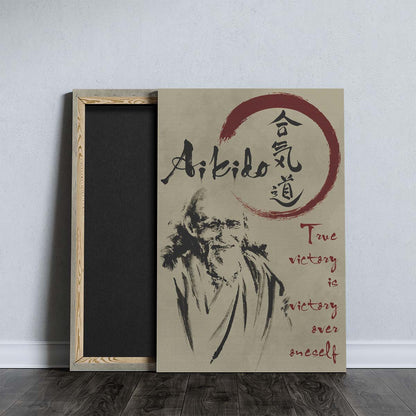 Aikido
合
気
道
True
victory
is
victory
over
oneself